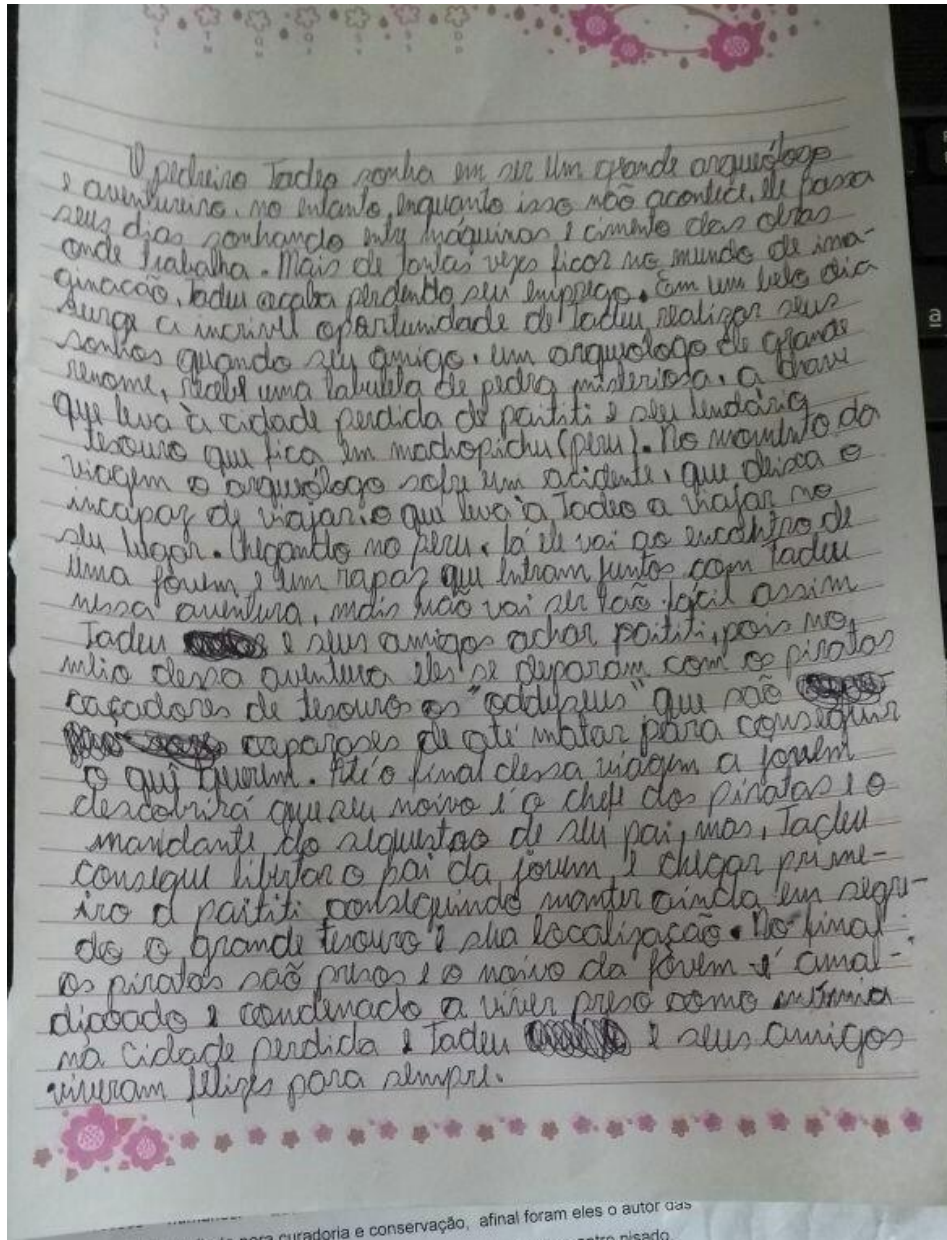 O pedreiro Tadeo sonha em ser Um grande arqueólogo
e aventureiro, no entanto, enquanto isso não acontece, ele passa
seus dias sonhando entre máquinas e cimento das obras
onde trabalha. Mais de tantas vezes ficar no mundo de ima-
ginacão, Tadeu acaba perdendo seu emprego. Em um belo dia
surge a incrivel oportunidade de Tadeu realizar seus
sonhos quando seu amigo, um arqueologo de grande
renome, recebe uma tabuleta de pedra misteriosa, a chave
que leva à cidade perdida de paititi e seu lendário
tesouro que fica em machopichu (peru). No momento da
viagem o arqueólogo sofre um acidente, que deixa o
incapaz de viajar, o que leva à Tadeo a viajar no
seu lugar. Chegando no peru, lá ele vai ao encontro de
Uma jóvem e um rapaz que entram juntos com Tadeu
nessa aventura, mais não vai ser tão fácil assim
Tadeu e seus amigos achar paititi, pois no
meio dessa aventura eles se deparam com os piratas
caçadores de tesouro os "oddyseus" que são
caparases de até matar para conseguir
o que querem. Até o final dessa viagem a jovem
descobrirá que seu noivo é o chefe dos piratas e o
mandante do sequestro de seu pai, mas, Tadeu
consegue libertar o pai da jóvem e chegar prime-
iro a paititi conseguindo manter ainda em segre-
do o grande tesouro e sua localização. No final
os piratas saõ presos e o noivo da jóvem é amal-
dicoado e condenado a viver preso como múmia
na cidade perdida e Tadeu e seus amigos
viveram felizes para sempre.
a
para curadoria e conservação, afinal foram eles o autor das
pisado